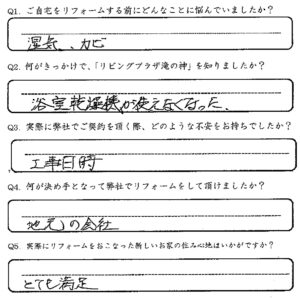 Q1. ご自宅をリフォームする前にどんなことに悩んでいましたか？
湿気、カビ
Q2. 何がきっかけで、「リビングプラザ滝の神」を知りましたか？
浴室乾燥機が使えなくなった。
Q3. 実際に弊社でご契約を頂く際、どのような不安をお持ちでしたか？
工事日時
Q4. 何が決め手となって弊社でリフォームをして頂けましたか？
地元の会社
Q5. 実際にリフォームをおこなった新しいお家の住み心地はいかがですか？
とても満足